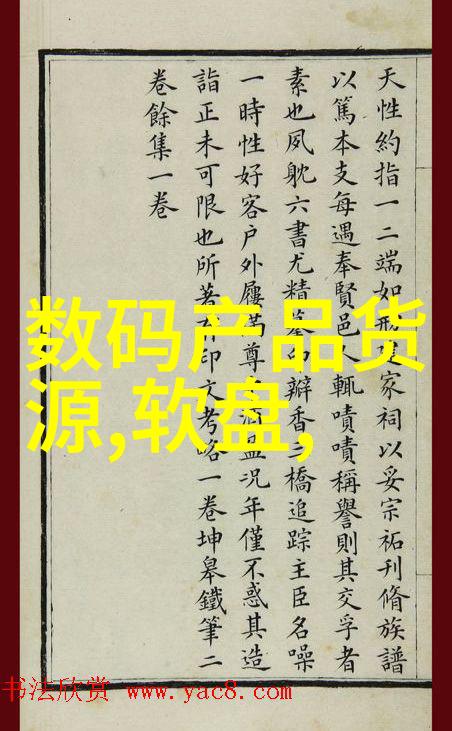 天性約指一二端如家祠以妥宗祏刋脩族譜
以篤本支每遇奉賢邑人輒嘖嘖稱譽則其交孚者
素也夙躭六書尤精摹印瓣香三橋追踪主臣名噪
一時性好客户外屨滿尊酒盈況年僅不惑其造
詣正未可限也所著有印文考略一卷坤皋鐵筆二
卷餘集一卷
数码产品货
源,软盘,
书法欣赏 www.yac8.com